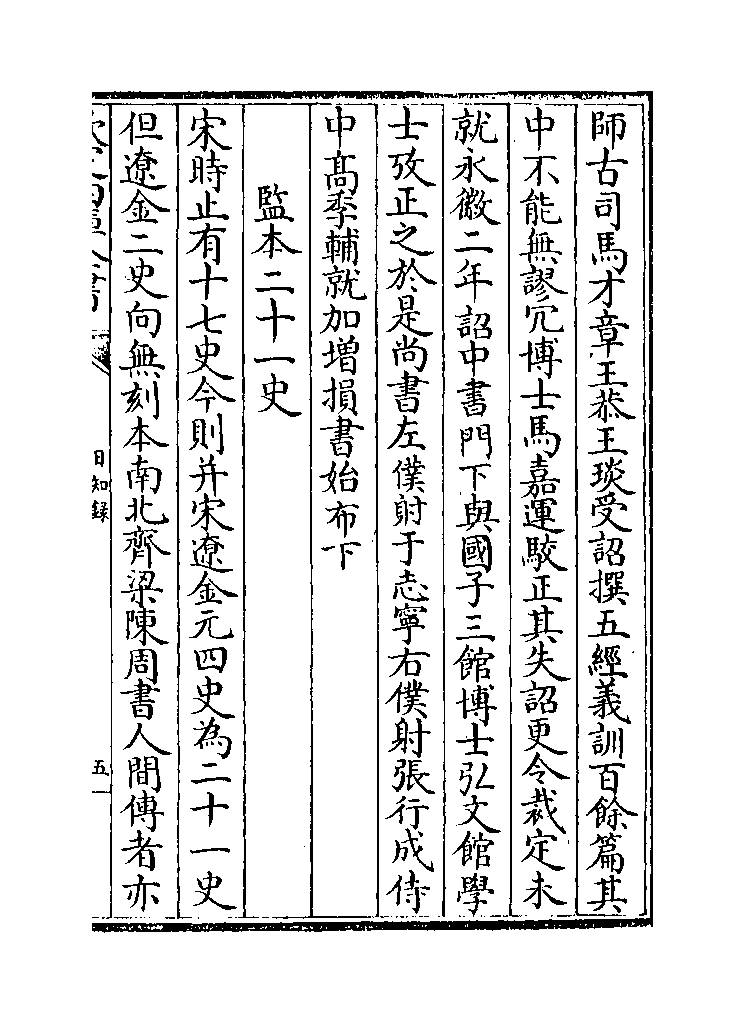 師古司馬才章王恭王琰受詔撰五經義訓百餘篇其
中不能無謬冗博士馬嘉運駮正其失詔更令裁定未
就永徽二年詔中書門下與國子三館博士弘文館學
士攷正之於是尚書左僕射于志寧右僕射張行成侍
中髙季輔就加増損書始布下
監本二十一史
宋時止有十七史今則并宋遼金元四史為二十一史
但遼金二史向無刻本南北齊梁陳周書人間傳者亦
日知錄
五一